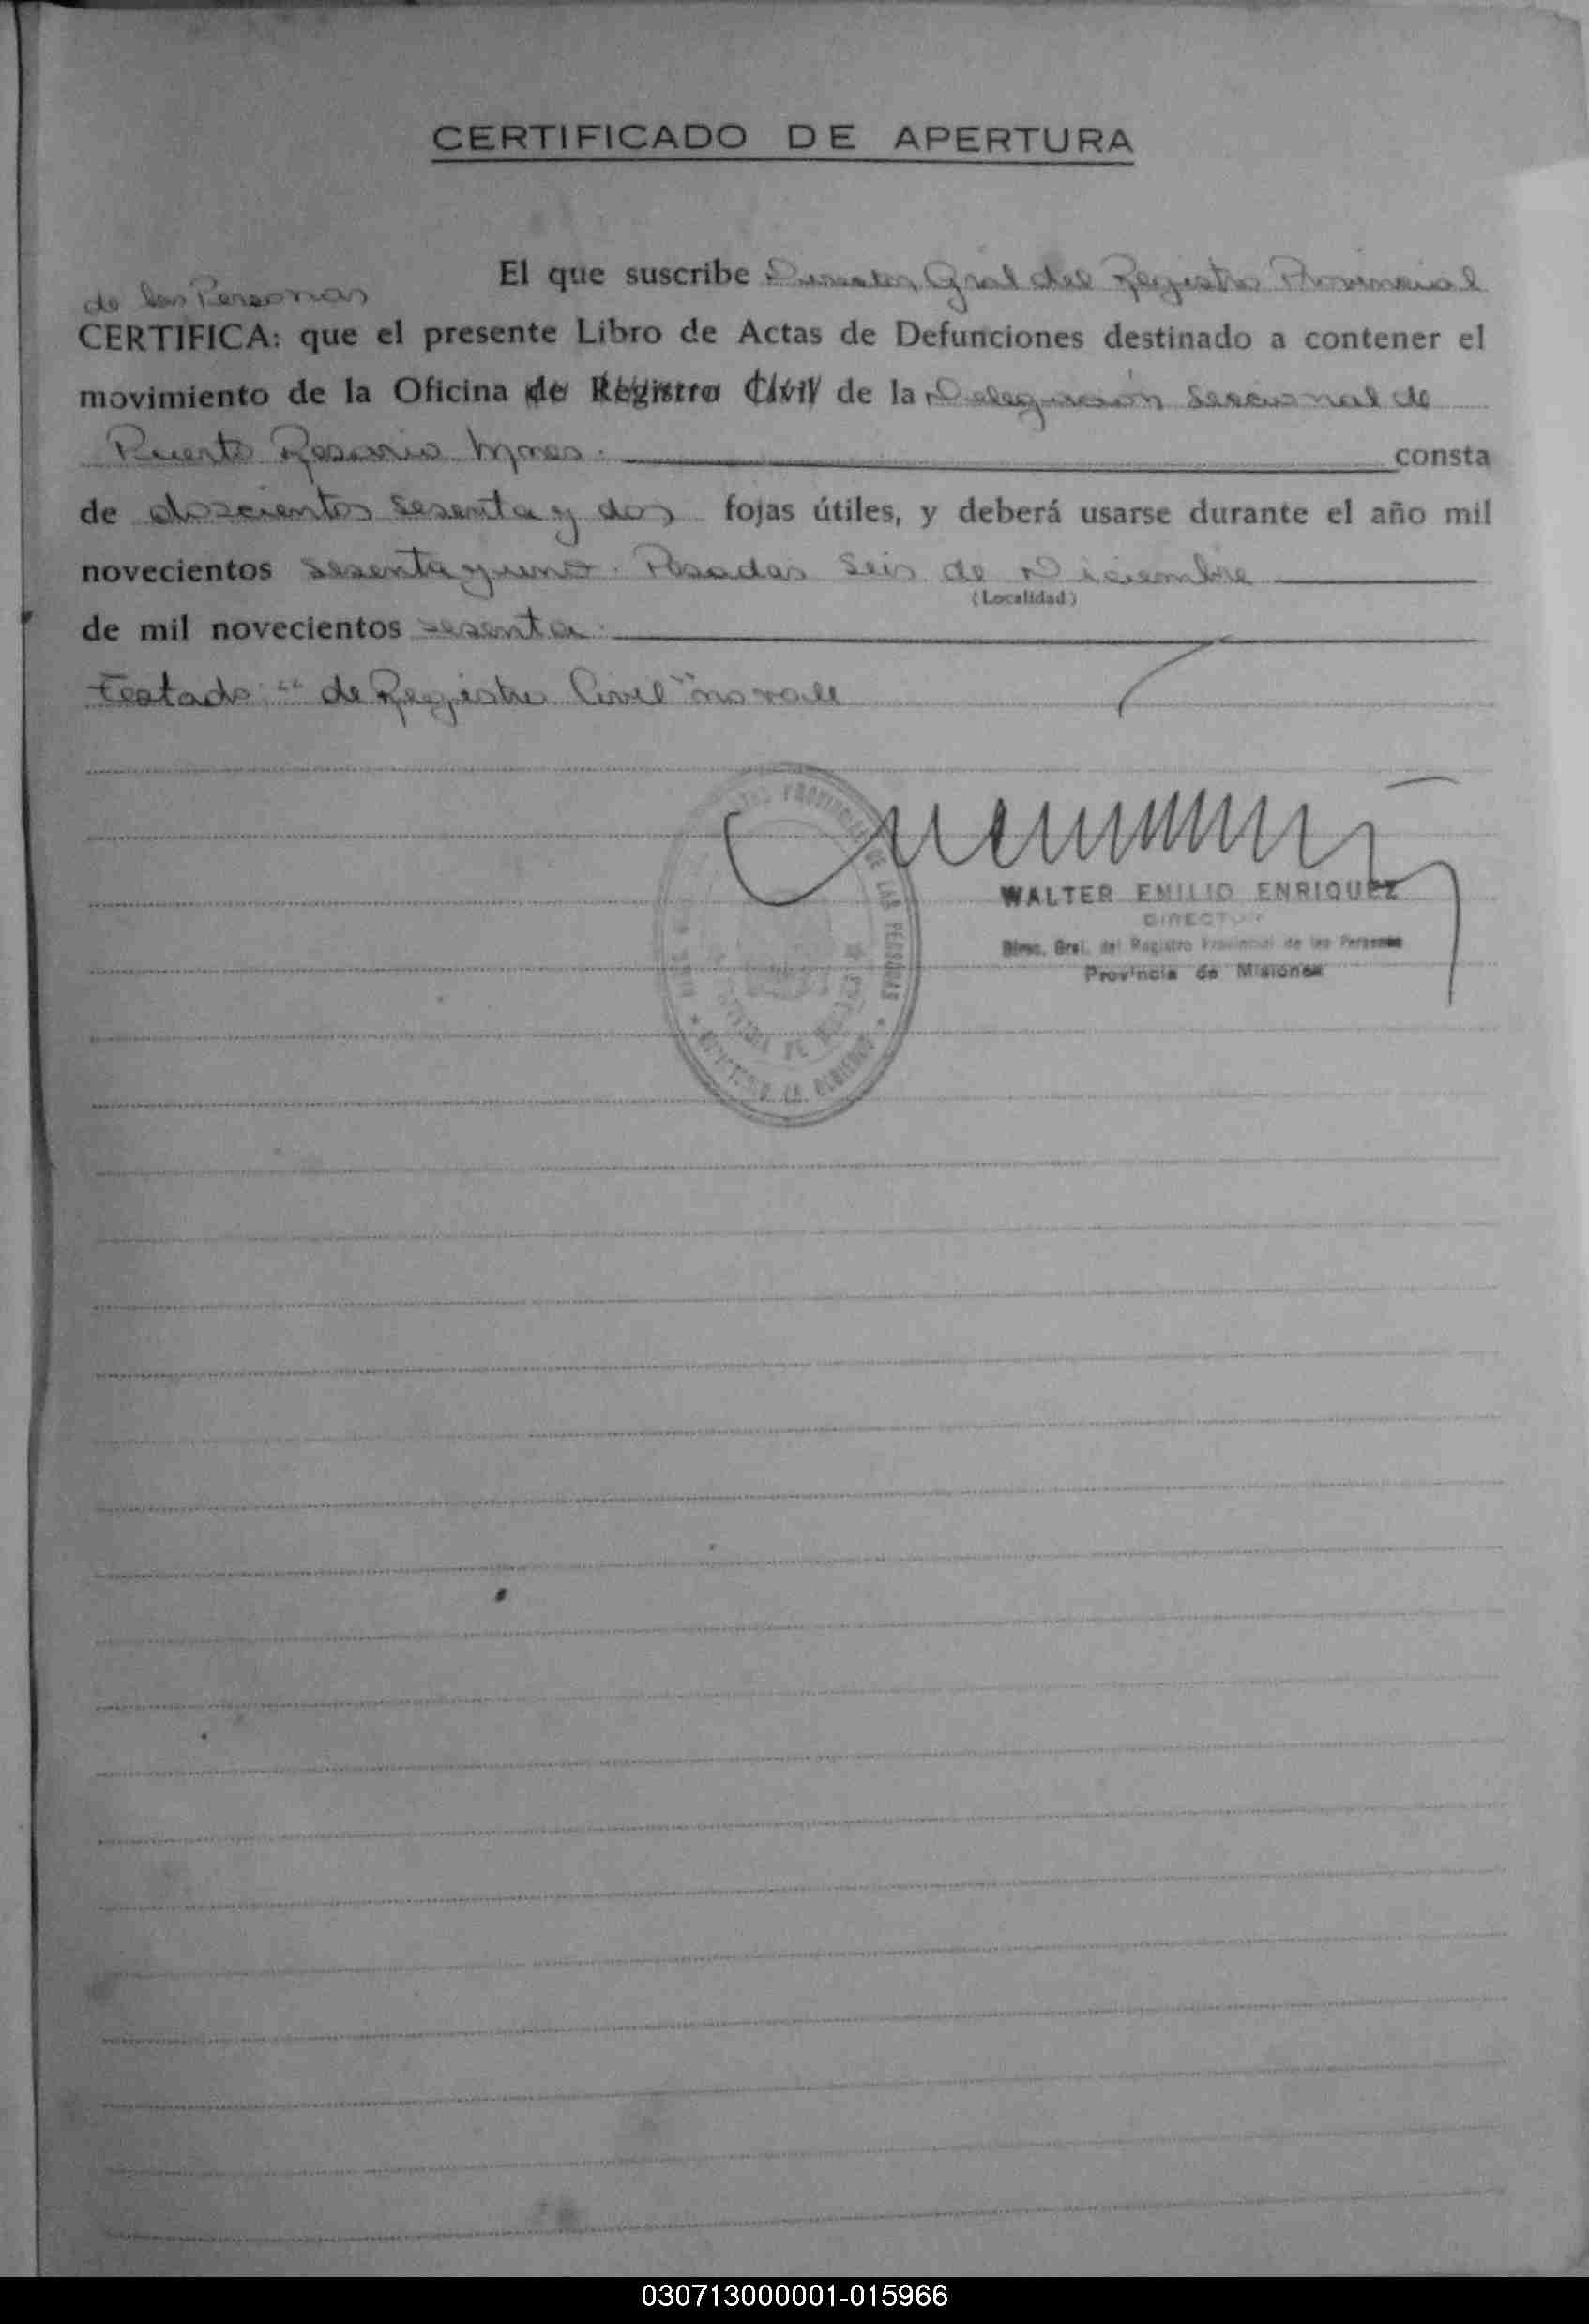 CERTIFICADO DE APERTURA
El que suscribe Director Gral del Registro Provincial
de las Personas
CERTIFICA: que el presente Libro de Actas de Defunciones destinado a contener el
movimiento de la Oficina de Registro Civil de la Delegación Seccional de
Puerto Rosario Mores. consta
de doscientos sesenta y dos fojas útiles, y deberá usarse durante el año mil
novecientos sesenta y uno. Posadas Seis de Diciembre
(Localidad)
de mil novecientos sesenta.
testado: "de Registro Civil" no vale
PROVINCIAL DE LAS PERSONAS
LA GOBIERNO
WALTER EMILIO ENRIQUEZ
DIRECTOR
Direc. Gral. del Registro Provincial de las Personas
Provincia de Misiones
030713000001-015966